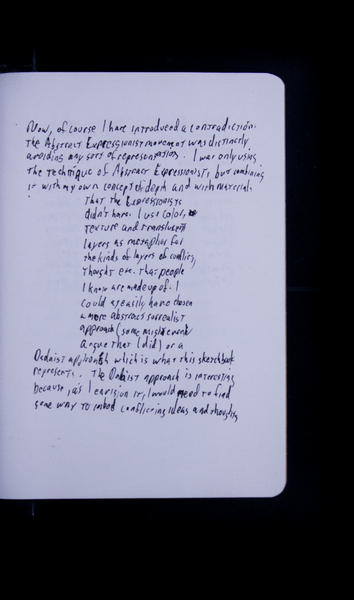 Now, of course I have introduced a contradiction.
The Abstract Expressionist movement was distinctly
avoiding any sort of representation. I was only using
the technique of Abstract Expressionists, but combining
it with my own concept of depth and with material
that the Expressionists
didn't have. I use color,
texture and translucent
layers as metaphor for
the kinds of layers of conflict,
thought etc. that people
I know are made up of. I
could as easily have chosen
a more abstract surrealist
approach (some might even
argue that I did) or a
Dadaist approach which is what this sketchbook
represents. The Dadaist approach is interesting
because, as I envision it, I would need to find
some way to imbed conflicting ideas and thoughts